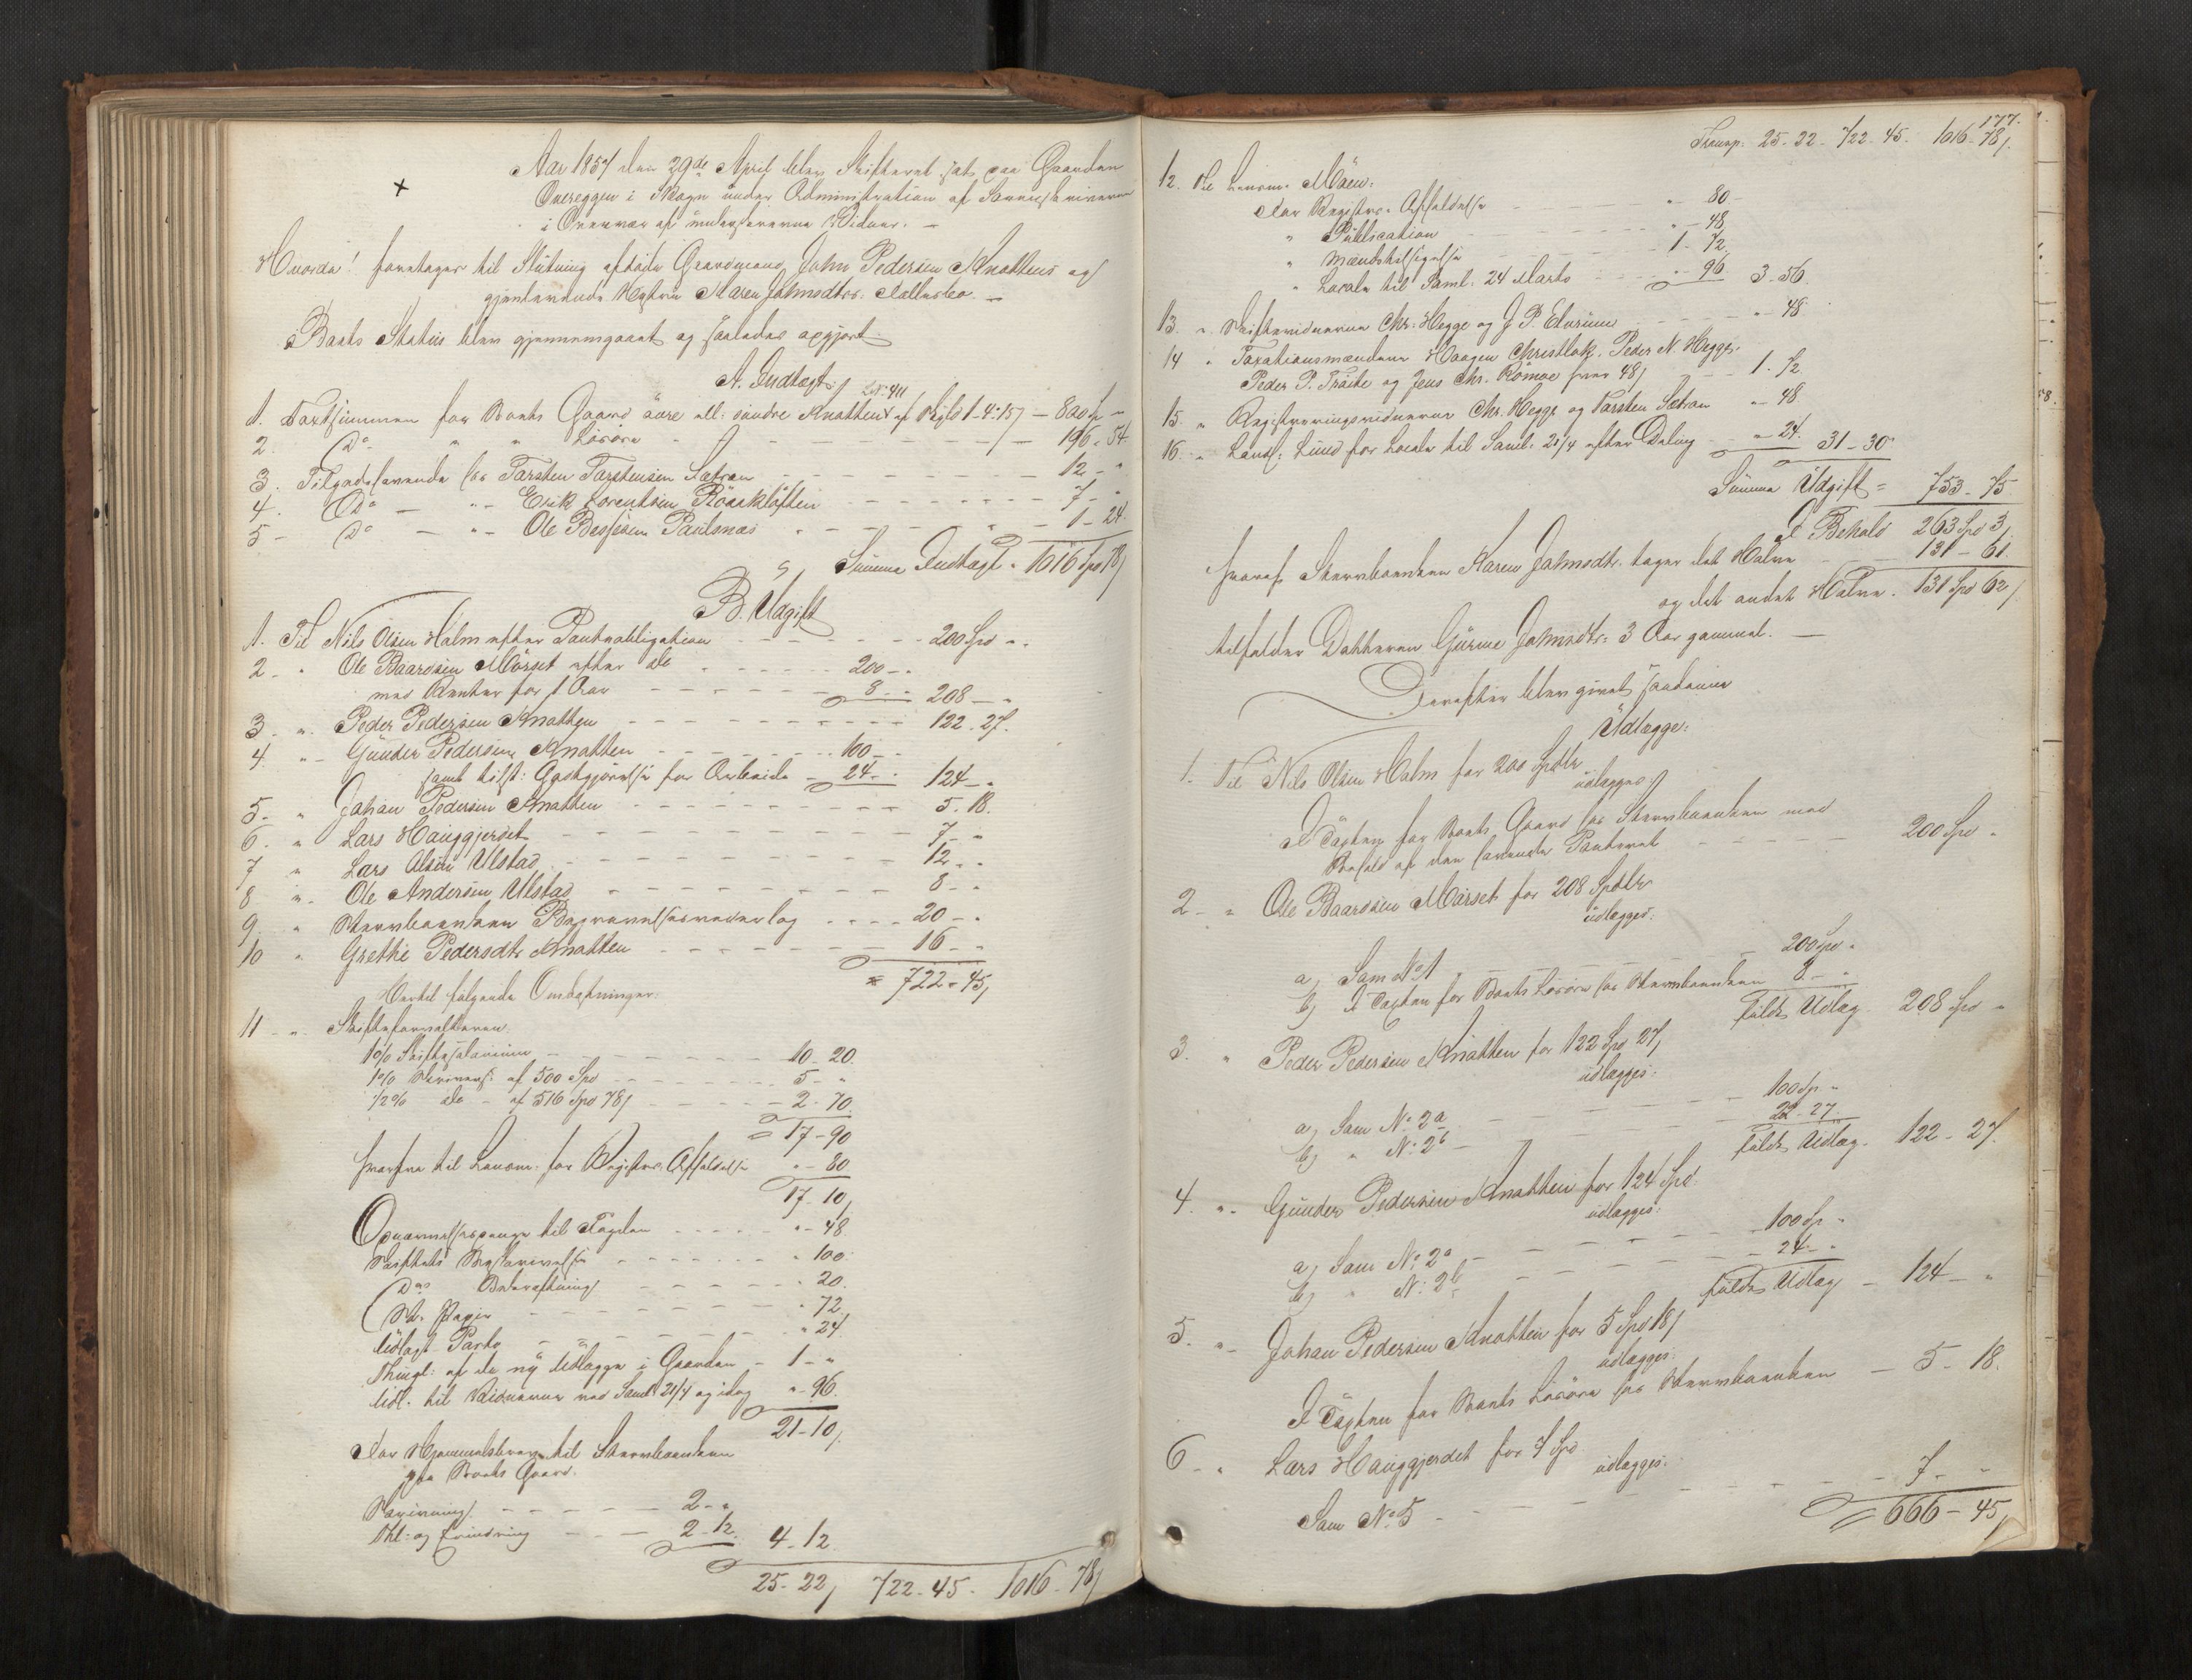 Aar 1857 den 29de April blev Skifteret sat paa Gaarden
Overeggen i Skogn under Administration af Sorenskriveren
i Overvær af underskrevne Vidner. –
Hvorda! foretages til Slutning afdøde Gaardmand John Pedersen Knattens og
gjenlevende Hustru Karen Johnsdtrs: Fællesbo. –
Boets Status blev gjennemgaaet og saaledes opgjort
A. Indtægt
LN: 411
1. Taxtsummen for Boets Gaard øvre ell: søndre Knatten af Skyld 1-4-15 – 800 Sp –
2. Do " " Løsøre – 196 - 54
3. Tilgodehavende hos Torsten Torstensen Sætran – 12 - "
4. Do – " – Erik Lorentsen Røsækløften – 7 - "
5 – Do – " – Ole Bessesen Paulsnæs – 1 - 24
Summa Indtægt = 1016 Spd 78 s
B. Udgift
1. Til Nils Olsen Halm efter Panteobligation – 200 Spd - "
2 – " Ole Baardsen Mörset efter do – 200 - "
med Renter for 1 Aar – 8 - " 208 - "
3 – " Peder Pedersen Knatten – 122 - 27.
4. " – Gunder Pedersen Knatten – 100 –
samt tilst: Godtgjørelse for Arbeide – 24 - " 124 - "
5 – " Johan Pedersen Knatten – 5 - 18.
6. " Lars Hauggjerdet – 7 - "
7 " Lars Olsen Ulstad – 12 - "
8 " – Ole Andersen Ulstad – 8 - "
9. " Stervboenken Begravelsesvederlag – 20 - "
10 " Grethe Pedersdtr Knatten – 16 - "
= 722 - 45 s
Hertil følgende Omkostninger:
11 – " Skifteforvalteren:
1% Skiftesalarium – 10 - 20
1% af 500 Spd – 5 - "
1/2% do – af 516 Spd 78 s – 2 - 70
= 17 - 90
herfra til Lensm: for Registr. Afholdelse " - 80
17 - 10
til Fogden – " - 48
Skiftets Beskrivelse – " 100
Dos Bekræftning – " 20.
St. Papir – " 72.
Udlagt Porto – " 24.
Thingl: af de ny Udlægge i Gaarden – 1 - "
Udl. til Vidnerne ved Saml: 21/4 og idag " - 96.
21 - 10
For Hjemmelsbrev til Stervboenken
paa Boets Gaard.
Skrivning – 2 - "
Thl- og Erindring – 2 - 12. 4 - 12
25 - 22 s 722 - 45 - 1016 - 78 s
177.
Transp: 25 - 22 - 722 - 45. 1016 - 78 s
12. Til Lensm. Möen:
For Registr. Afholdelse – " - 80 –
" Publication – " - 48
" – 1 - 72
" Locale til Saml: 24 Marts – " - 96 3 - 56.
13. " Skiftevidnerne Chr: Hegge og J. P. Elverum – " - 48
14 " Taxationsmændene Haagen Christlok, Peder N. Hegge,
Peder P. Tröite og Jens Chr. Römoe hver 48 s – 1 - 72
15. " Registreringsvidnerne Chr. Hegge og Torsten Sætran " - 48
16. " Lund for Locale til Saml: 21/4 efter Delning – " - 24. 31 - 30
Summa Udgift = 753 - 75
I Behold 263 Spd 3 s
hvoraf Stervboenken Karen Johnsdtr. tager det Halve – 131 - 61.
og det andet Halve. 131 Spd 62 s
tilfalder Datteren Gurine Johnsdtr: 3 Aar gammel. –
Derefter blev givet saadanne
Udlægge:
1. Til Nils Olsen Halm for 200 Spdlr
udlægges
I Taxten for Boets Gaard hos Stervboenken med
Behold af den havende Panteret – 200 Spd "
2 – " Ole Baardsen Mörset for 208 Spdlr
udlægges:
a, Som No 1 – 200 Spd "
b, I Taxten for Boets Løsøre hos Stervboenken 8 - "
fuldt Udlæg 208 Spd "
3. " Peder Pedersen Knatten for 122 Spd 27 s
udlægges:
a, Som No 2a – 100 Sp "
b, " No 2b – 22 - 27
fuldt Udlæg. 122 - 27.
4. " – Gunder Pedersen Knatten for 124 Spd:
udlægges:
a, Som No 2a – 100 Sp "
b, " No 2b – 24 - "
fuldt Udlæg – 124 - "
5. " – Johan Pedersen Knatten for 5 Spd 18 s
udlægges:
I Taxten for Boets Løsøre hos Stervboenken – 5 - 18.
6 – " Lars Hauggjerdet for 7 Spd
udlægges:
Som No 5 – 7 - "
= 666 - 45 s